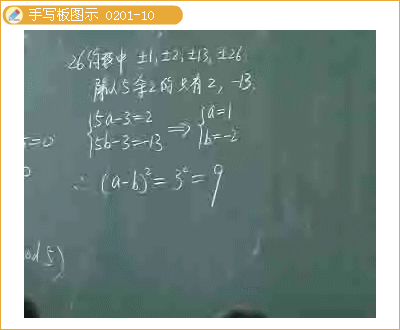 手写板图示 0201-10
26的因数中 ±1, ±2, ±13, ±26
除以5余2的只有2, -13.
5a-3=2 ⇒ a=1
5b-3=-13 b=-2
=0
∴ (a-b)²=3²=9
od 5)